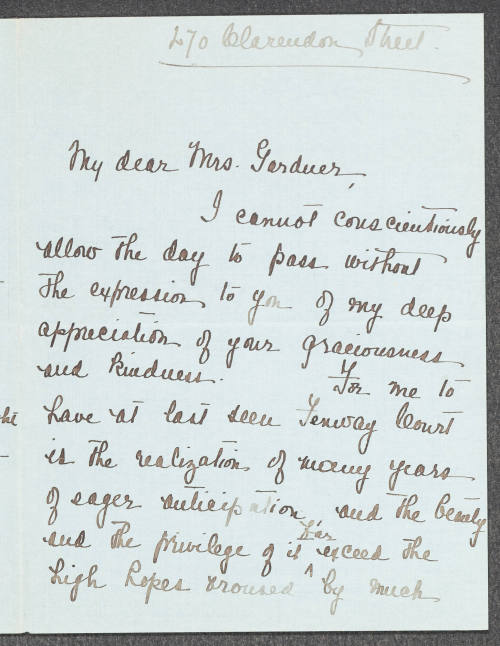 270 Clarendon Street.
My dear Mrs. Gardner,
I cannot conscientiously
allow the day to pass without
the expression to you of my deep
appreciation of your graciousness
and kindness. For me to
have at last seen Fenway Court
is the realization of many years
of eager anticipation and the beauty
and the privilege of it far exceed the
high hopes aroused by much